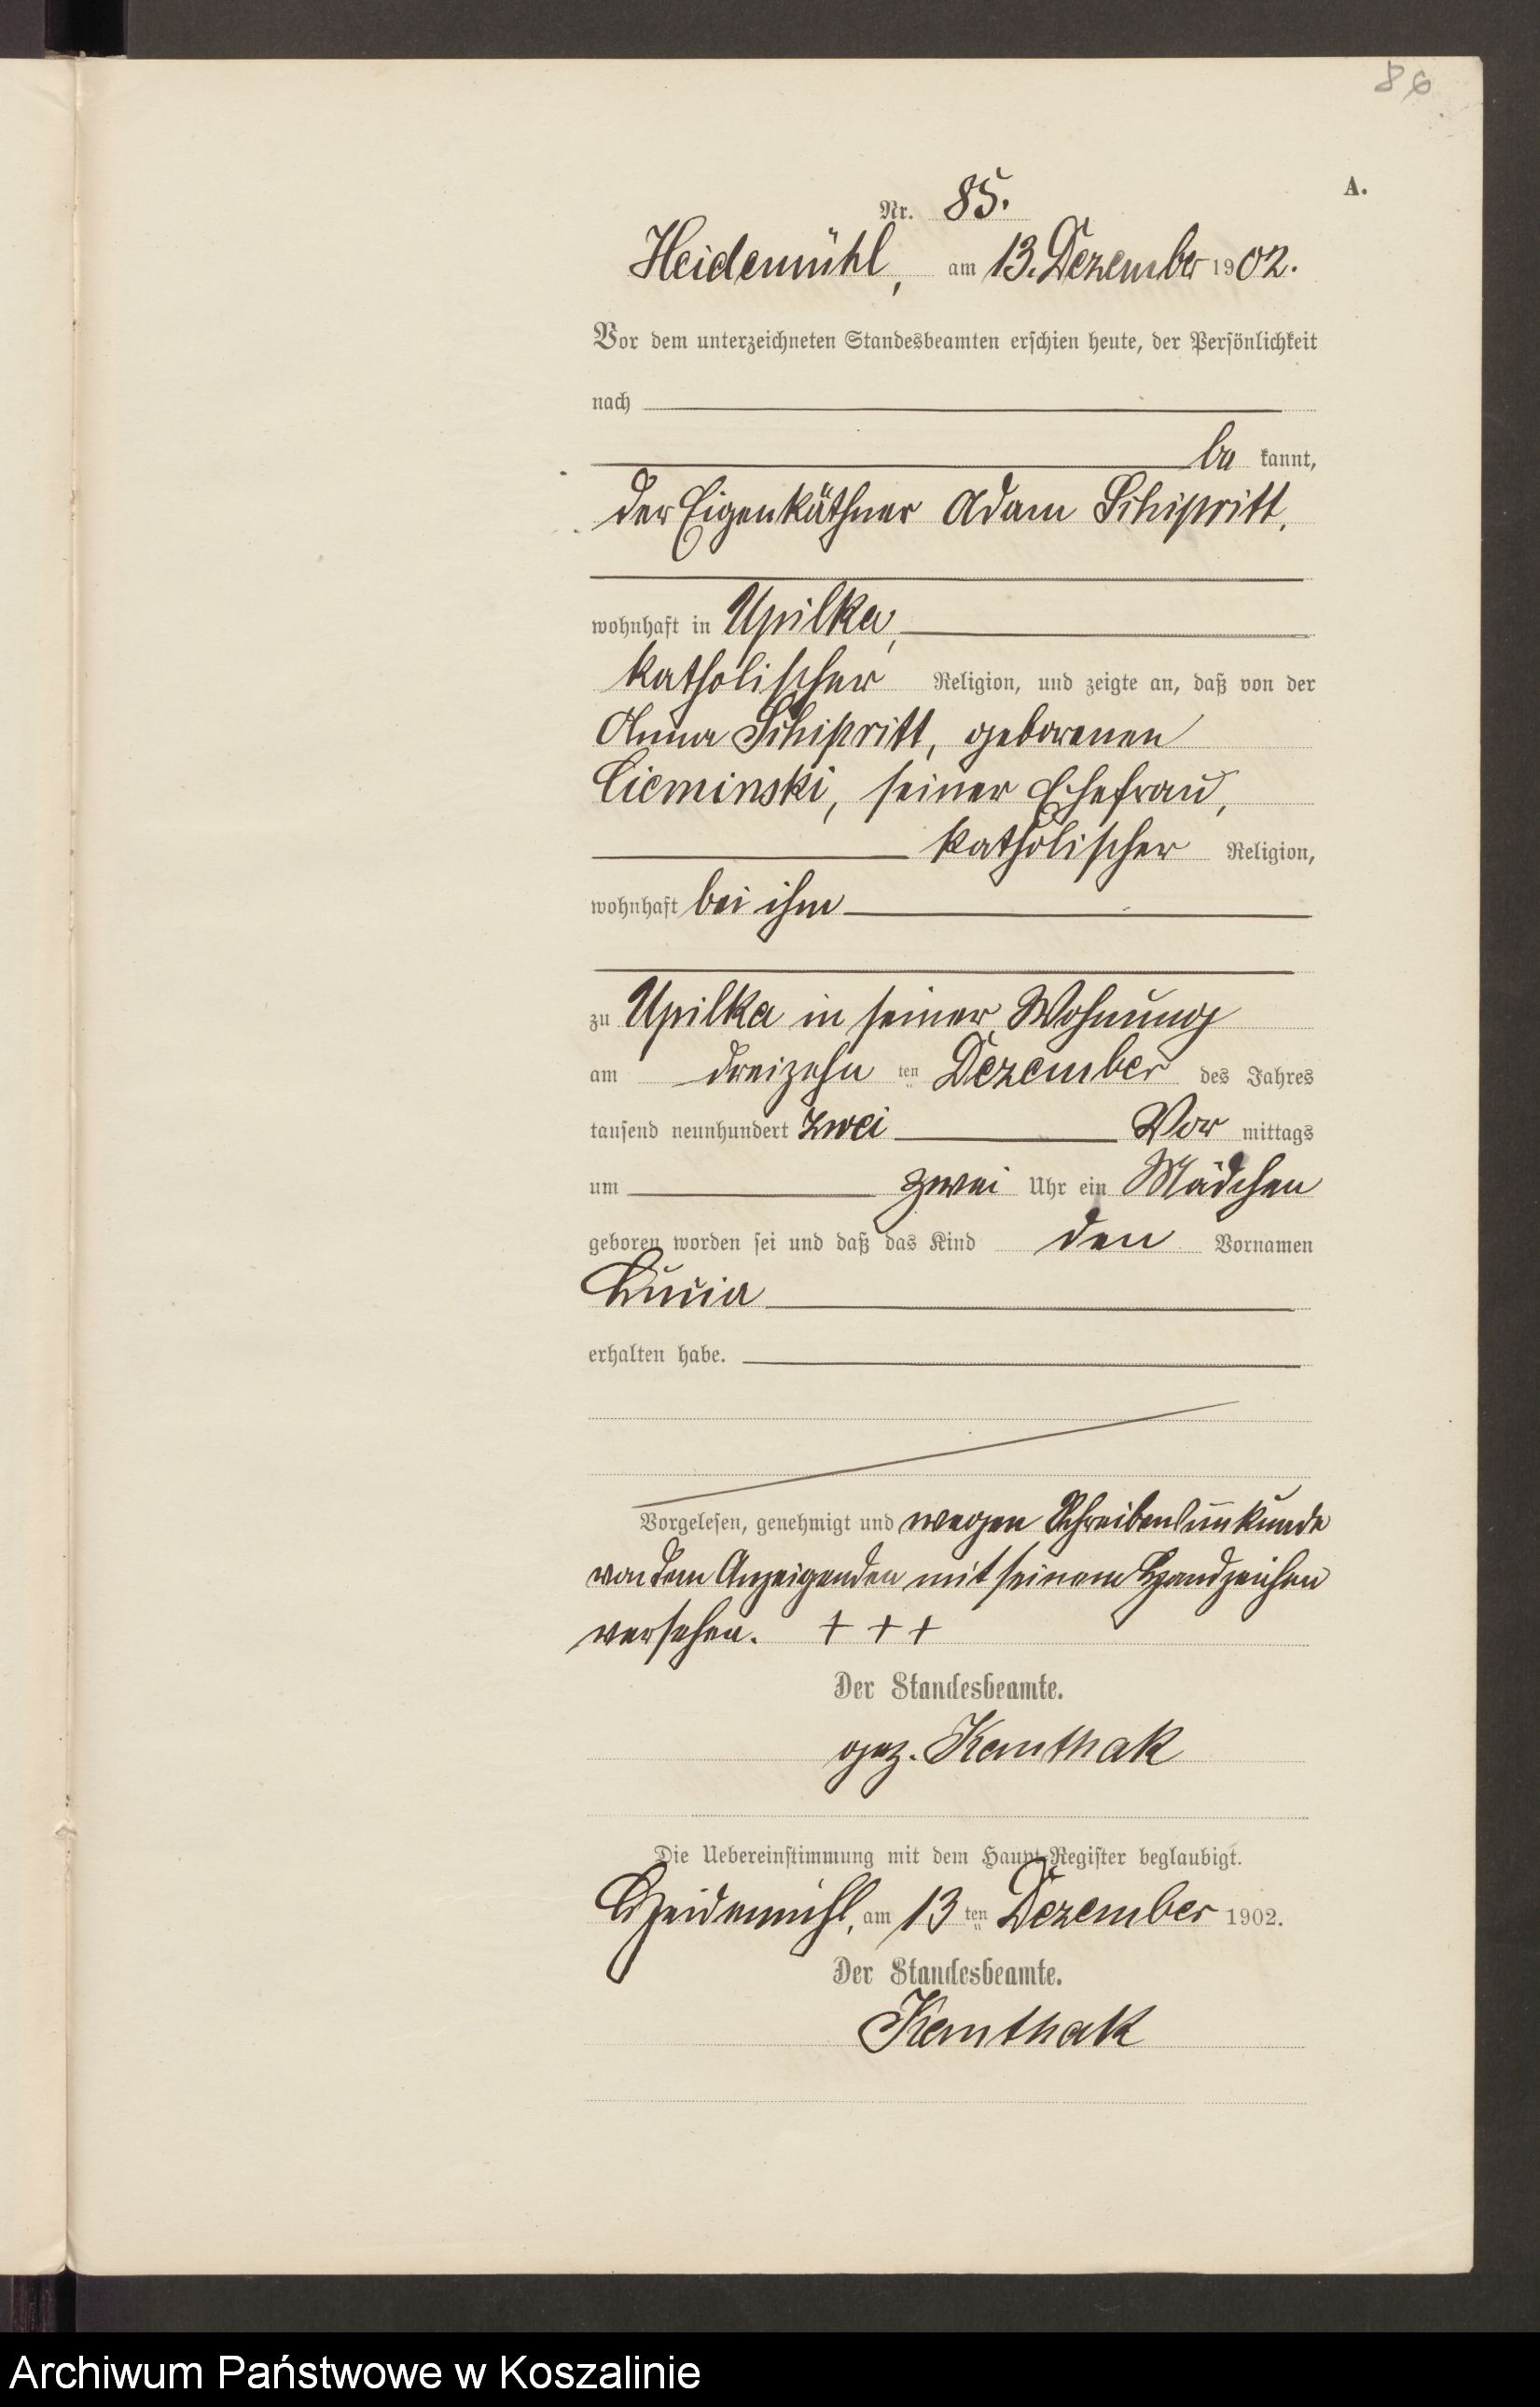 86
A.
Nr. 85.
Heidemühl, am 13. Dezember 1902.
Vor dem unterzeichneten Standesbeamten erschien heute, der Persönlichkeit
nach
be kannt,
der Eigenkäthner Adam Schipritt,
wohnhaft in Upilka,
katholischer Religion, und zeigte an, daß von der
Anna Schipritt, geborenen
Cieminski, seiner Ehefrau,
katholischer Religion,
wohnhaft bei ihm
zu Upilka in seiner Wohnung
am dreizehn ten Dezember des Jahres
tausend neunhundert zwei Vor mittags
um zwei Uhr ein Mädchen
geboren worden sei und daß das Kind den Vornamen
Lucia
erhalten habe.
Vorgelesen, genehmigt und wegen Schreibensunkunde
von dem Anzeigenden mit seinem Handzeichen
versehen. + + +
Der Standesbeamte.
gez. Kemthak
Die Uebereinstimmung mit dem Haupt-Register beglaubigt.
Heidemühl, am 13 ten Dezember 1902.
Der Standesbeamte.
Kemthak
Archiwum Państwowe w Koszalinie